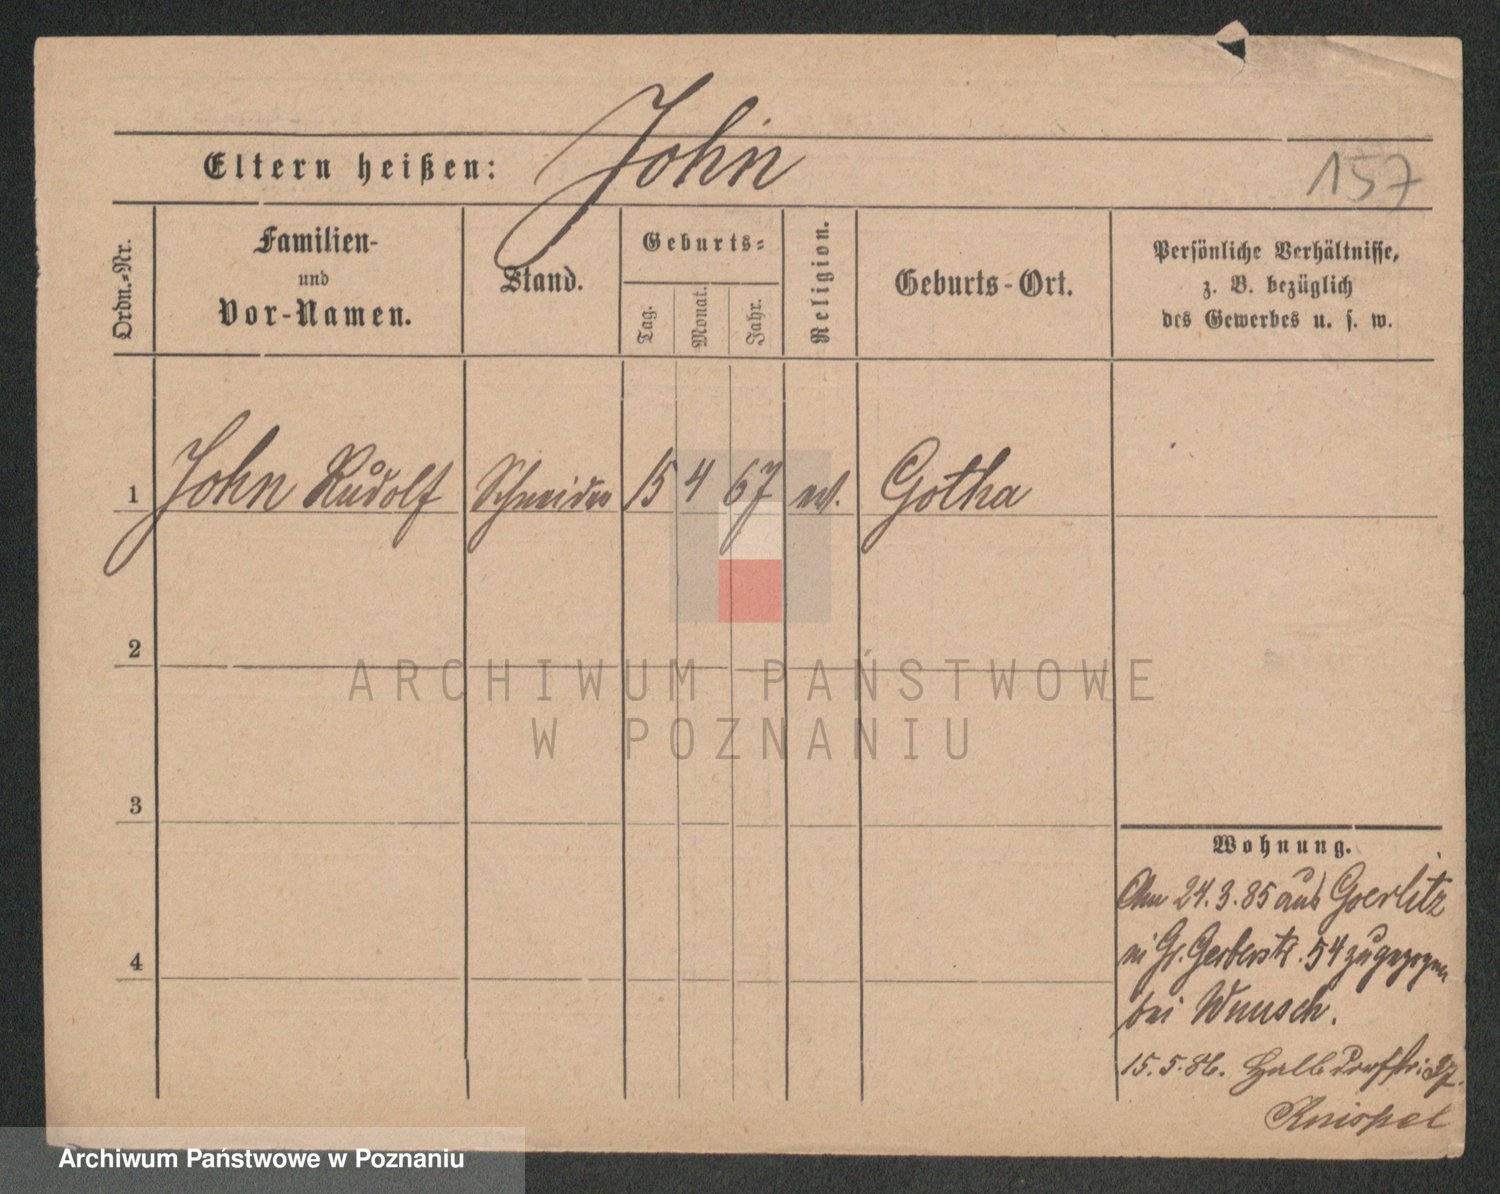 John
Eltern heißen:
157
Ordn.-Nr.
Familien-
und
Vor-Namen.
Stand.
Geburts-
Tag.
Monat.
Jahr.
Religion.
Geburts-Ort.
Persönliche Verhältnisse,
z. B. bezüglich
des Gewerbes u. s. w.
1 John Rudolf Schneider 15 4 67 ev. Gotha
2
3
4
Wohnung.
Am 24.3.85 aus Goerlitz
in Gr. Gerberstr. 54 zugezogen
bei Wunsch.
15.5.86. Halbdorfstr: 37.
Knispel
ARCHIWUM PAŃSTWOWE
W POZNANIU
Archiwum Państwowe w Poznaniu